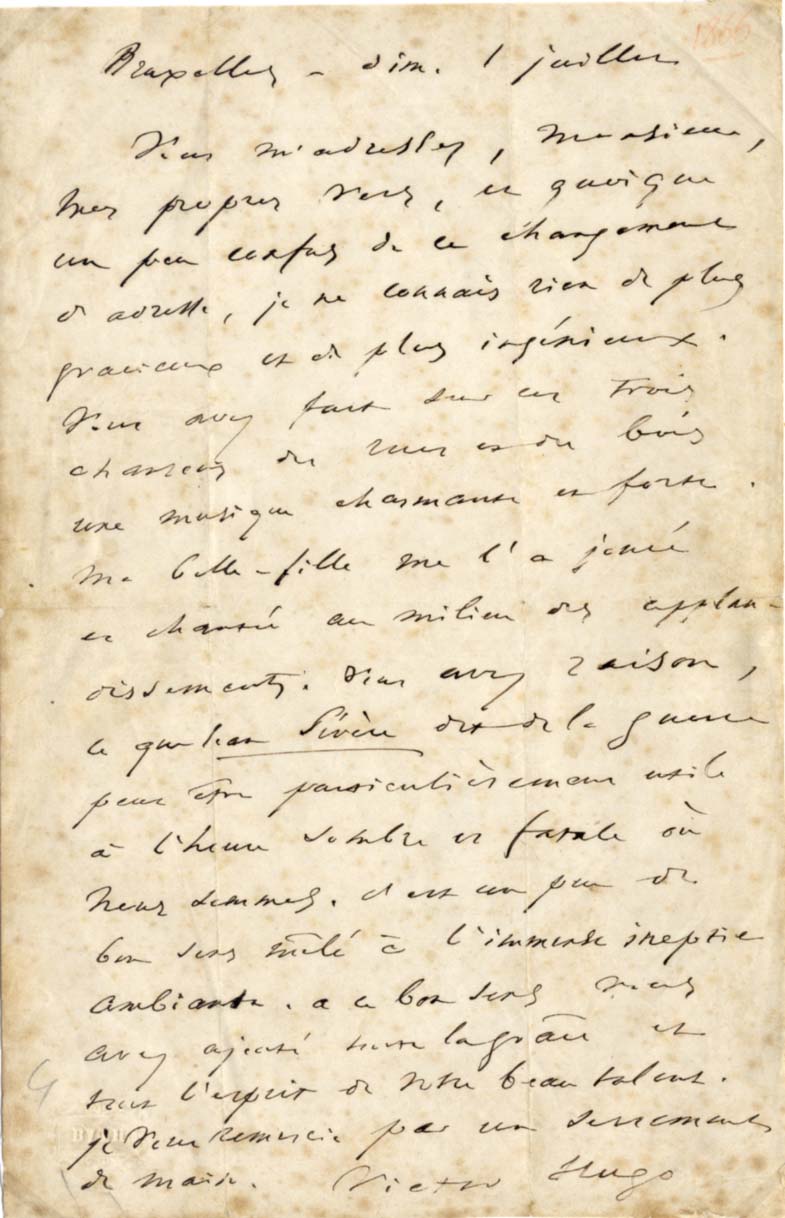 1866
Bruxelles – dim. 1 juillet
Vous m'adressez, monsieur,
mes propres vers, et quoique
un peu confus de ce changement
d'adresse, je ne connais rien de plus
gracieux et de plus ingénieux.
Vous avez fait sur ces trois
chansons des rues et des bois
une musique charmante et forte.
Ma belle-fille me l'a jouée
et chantée au milieu des applau-
dissements. Vous avez raison,
ce que Jean Sévère dit de la guerre
peut être particulièrement utile
à l'heure sombre et fatale où
nous sommes. C'est un peu de
bon sens mêlé à l'immense ineptie
ambiante. à ce bon sens vous
avez ajouté toute la grâce et
tout l'esprit de votre beau talent.
je vous remercie par un serrement
de main. Victor Hugo